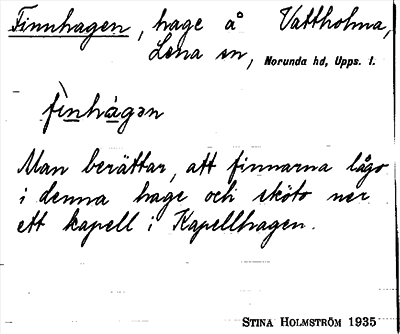 Finnhagen, hage å Vattholma,
Lena sn, Norunda hd, Upps. l.
fìnhàgən
Man berättar, att finnarna lågo
i denna hage och sköto ner
ett kapell i Kapellhagen.
STINA HOLMSTRÖM 1935